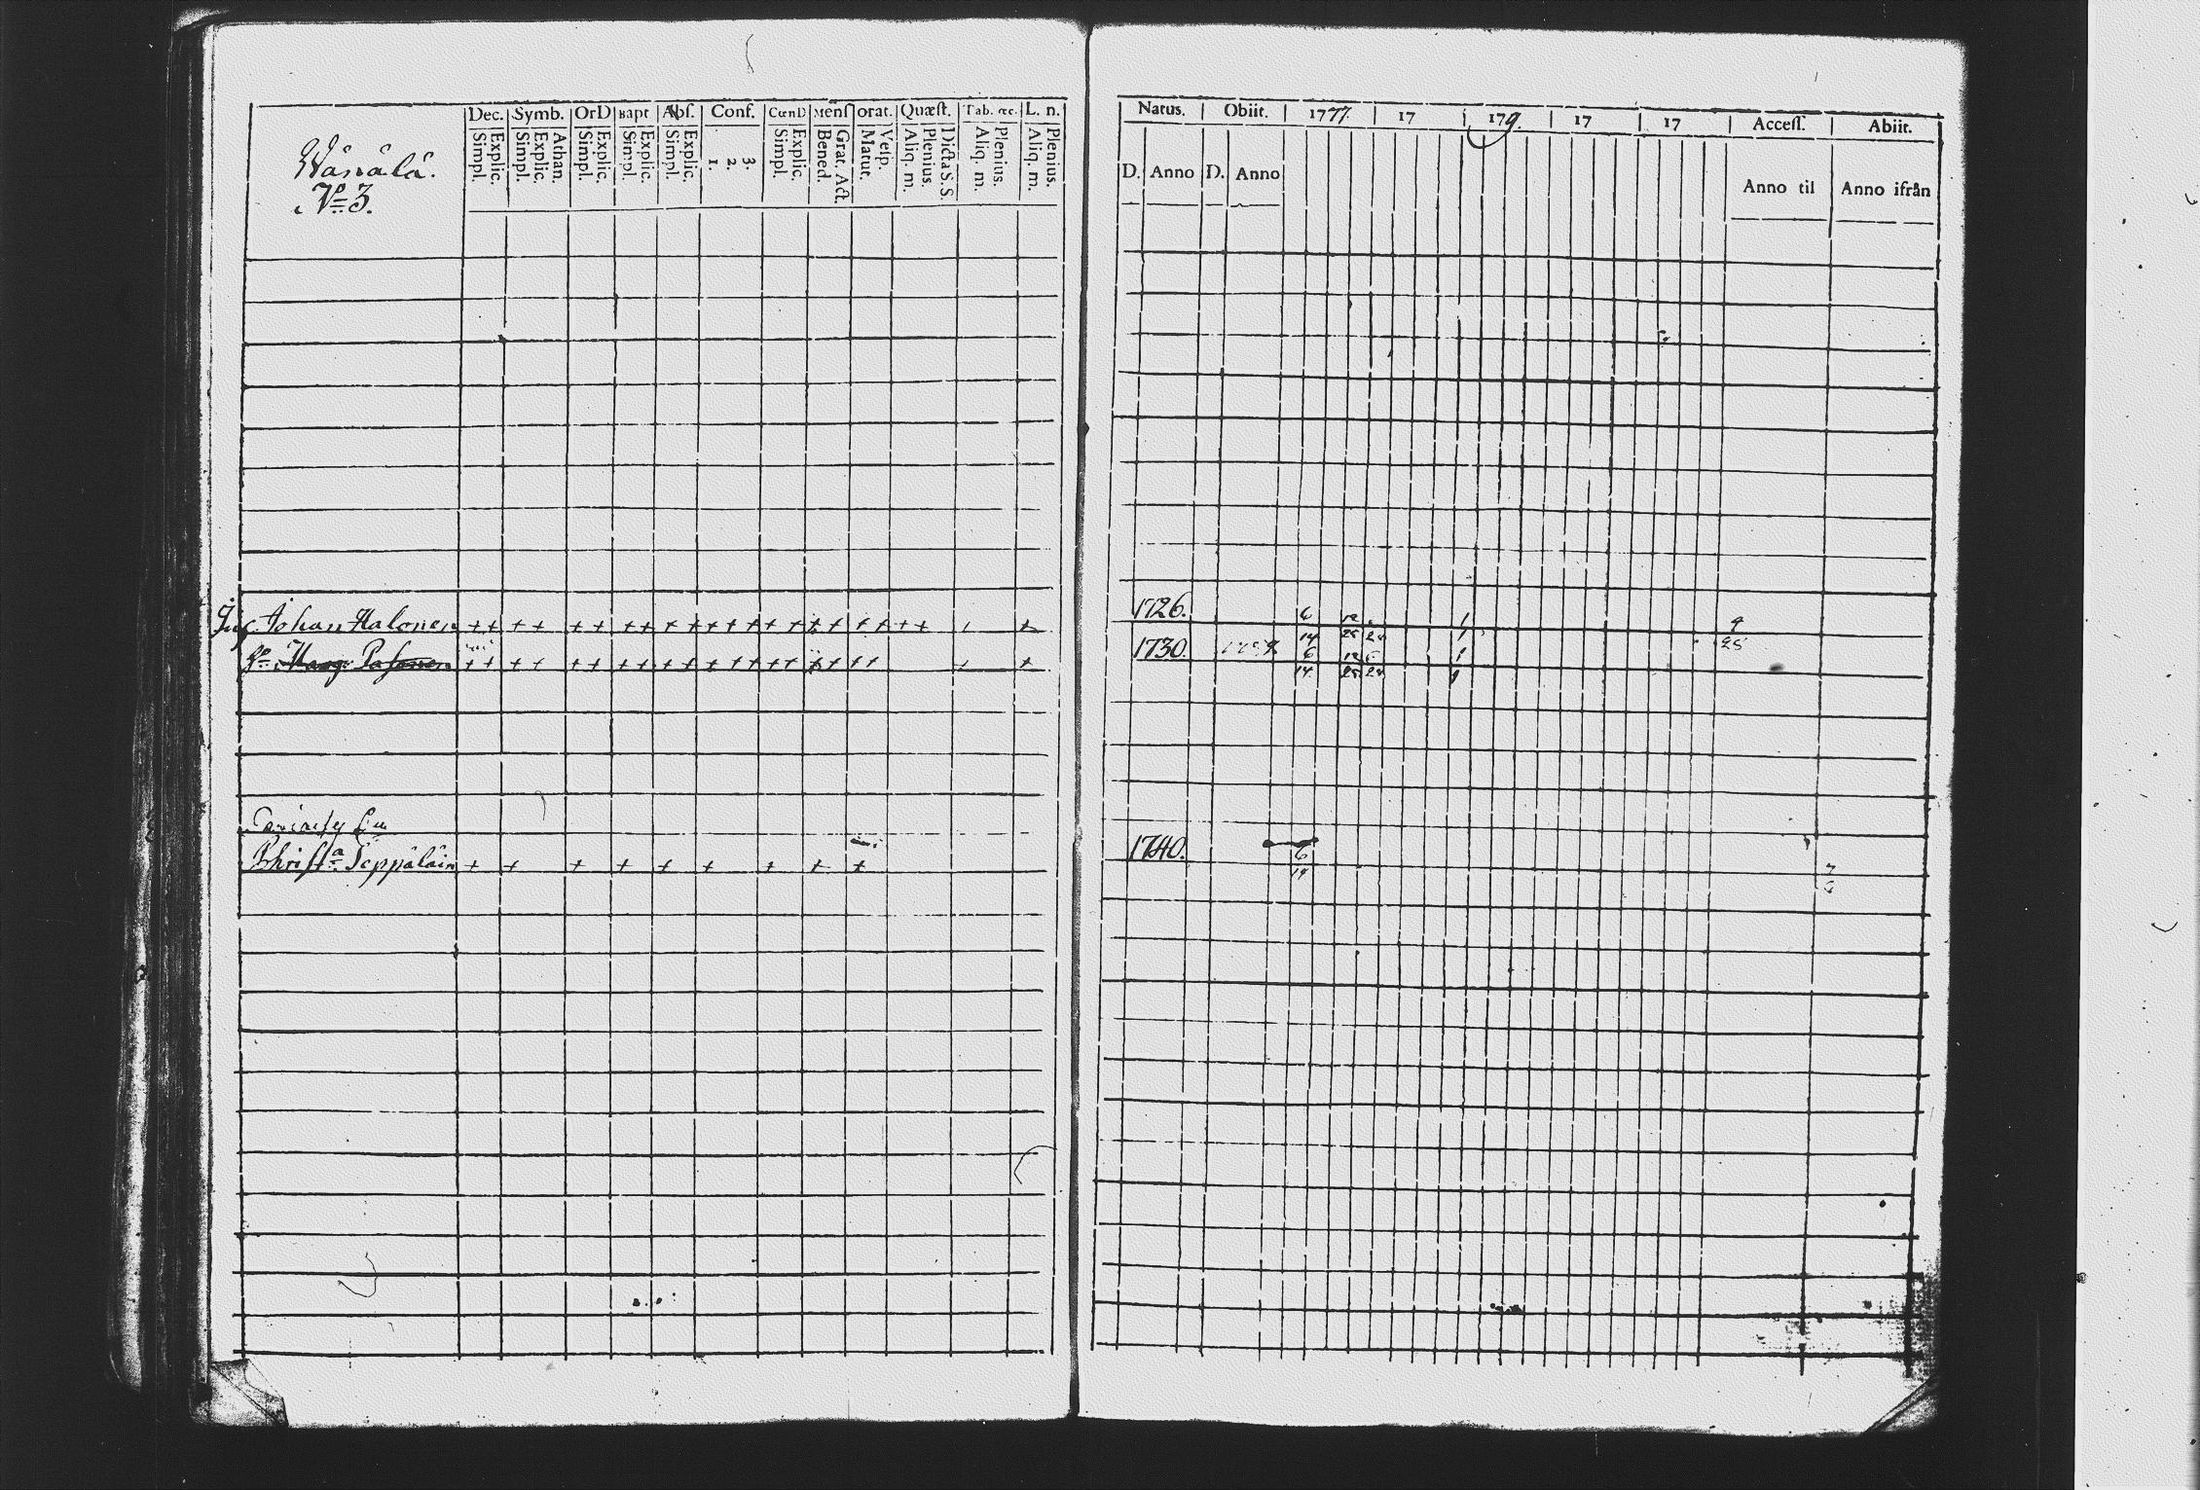 Dec. Symb. OrD Bapt Abſ. Conf. CœnD Menſ orat. Quæſt. Tab. œc. L. n.
Simpl. Explic. Simpl. Explic. Athan. Simpl. Explic. Simpl. Explic. Simpl. Explic. 1. 2. 3. Simpl. Explic. Bened. Grat. Act. Matut. Veſp. Aliq. m. Plenius. Dicta S.S. Aliq. m. Plenius. Aliq. m. Plenius.
Wänälä.
No 3.
Johan Halonen + + + + + + + + + + + + + + + + + + + + +
Marg. Pasonen + + + + + + + + + + + + + + + + + +
Christa Seppäläin + + + + + + + + +
Natus. Obiit. 1777. 17 179. 17 17 Acceſſ. Abiit.
D. Anno D. Anno Anno til Anno ifrån
1726. 6 12
14 25 24 9
1730. 6 12 25
14 25 24
1740. 6
14